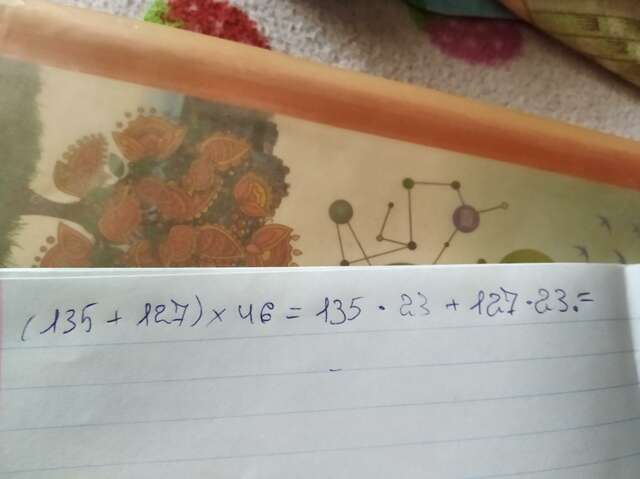 (135 + 127) × 46 = 135 · 23 + 127 · 23. =